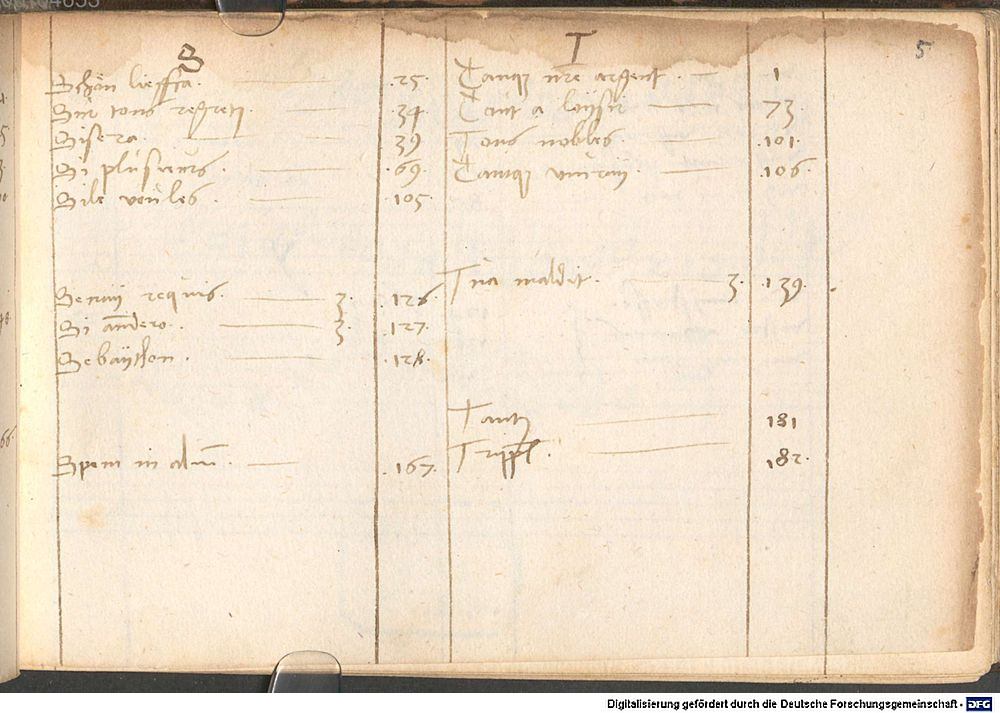 S
Schön lieffra. 25.
Sur tous regretz. 34
Sisera. 39
Si plusieurs. 69.
Sile voules. 105
Seray requis. 3. 126
Si andero. 3 127.
Sebaÿthon. 128.
Spem in aliū. 167.
T
5
Tanqz nre argent. 1
Tant a loysir 73
Tous nobles 101.
Tantqz viuray. 106.
Tua maldit. 3. 139.
Tantz 181
Trippl. 182.
Digitalisierung gefördert durch die Deutsche Forschungsgemeinschaft - DFG